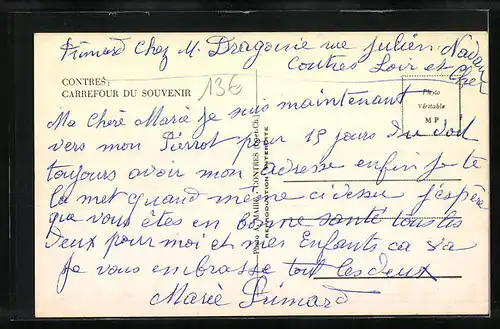 Primard Chez M. Dragonie rue Julien Nadau
Contres Loir et Cher
CONTRES:
CARREFOUR DU SOUVENIR
136
Photo
Véritable
M P
Ma Chère Marie je suis maintenant
vers mon Pierrot pour 15 jours Du doit
toujours avoir mon adresse enfin je te
la met quand même ci dessu j'espère
que vous êtes en bonne santé tous les
deux pour moi et mes Enfants ca va
Je vous embrasse tout les deux
Marie Primard
CONTRES (Loir-et-Ch.)
REPRODUCTION INTERDITE